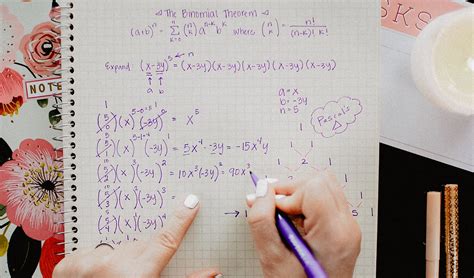 The Binomial Theorem
(a+b)ⁿ = Σ (n k) aⁿ⁻ᵏ bᵏ where (n k) = n! / (n-k)! k!
n
k=0
Expand: (x-3y)⁵ = (x-3y)(x-3y)(x-3y)(x-3y)(x-3y)
a b
a = x
b = -3y
n = 5
Pascal's
△
NOTE
1
(5 0)(x)⁵⁻⁰⁼⁵(-3y)⁰ = x⁵
(5 1)(x)⁵⁻¹⁼⁴(-3y)¹ = 5x⁴·-3y = -15x⁴y
(5 2)(x)³(-3y)² = 10x³(-3y)² = 90x³
(5 3)(x)²(-3y)³ =
(5 4)(x)¹(-3y)⁴
1
1 1
1 2 1
→ 1 5 1